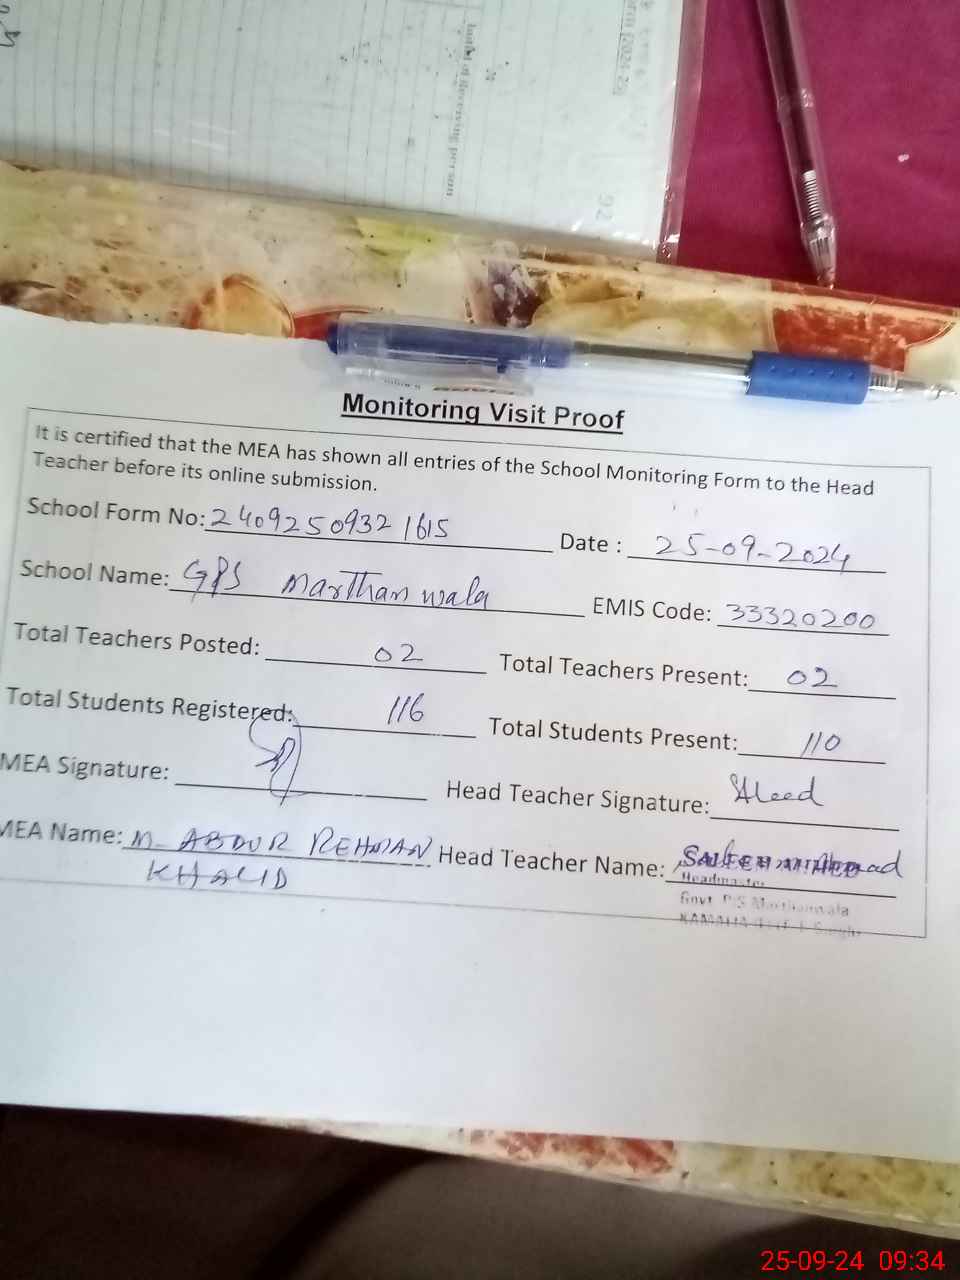 Initial of Receiving person
92
Monitoring Visit Proof
It is certified that the MEA has shown all entries of the School Monitoring Form to the Head
Teacher before its online submission.
School Form No: 24092509321615 Date : 25-09-2024
School Name: GPS Marthanwala EMIS Code: 33320200
Total Teachers Posted: 02 Total Teachers Present: 02
Total Students Registered: 116 Total Students Present: 110
MEA Signature: Head Teacher Signature:
MEA Name: M. ABDUR REHMAN Head Teacher Name:
KHALID
Headmaster
Govt. P/S Marthanwala
25-09-24 09:34